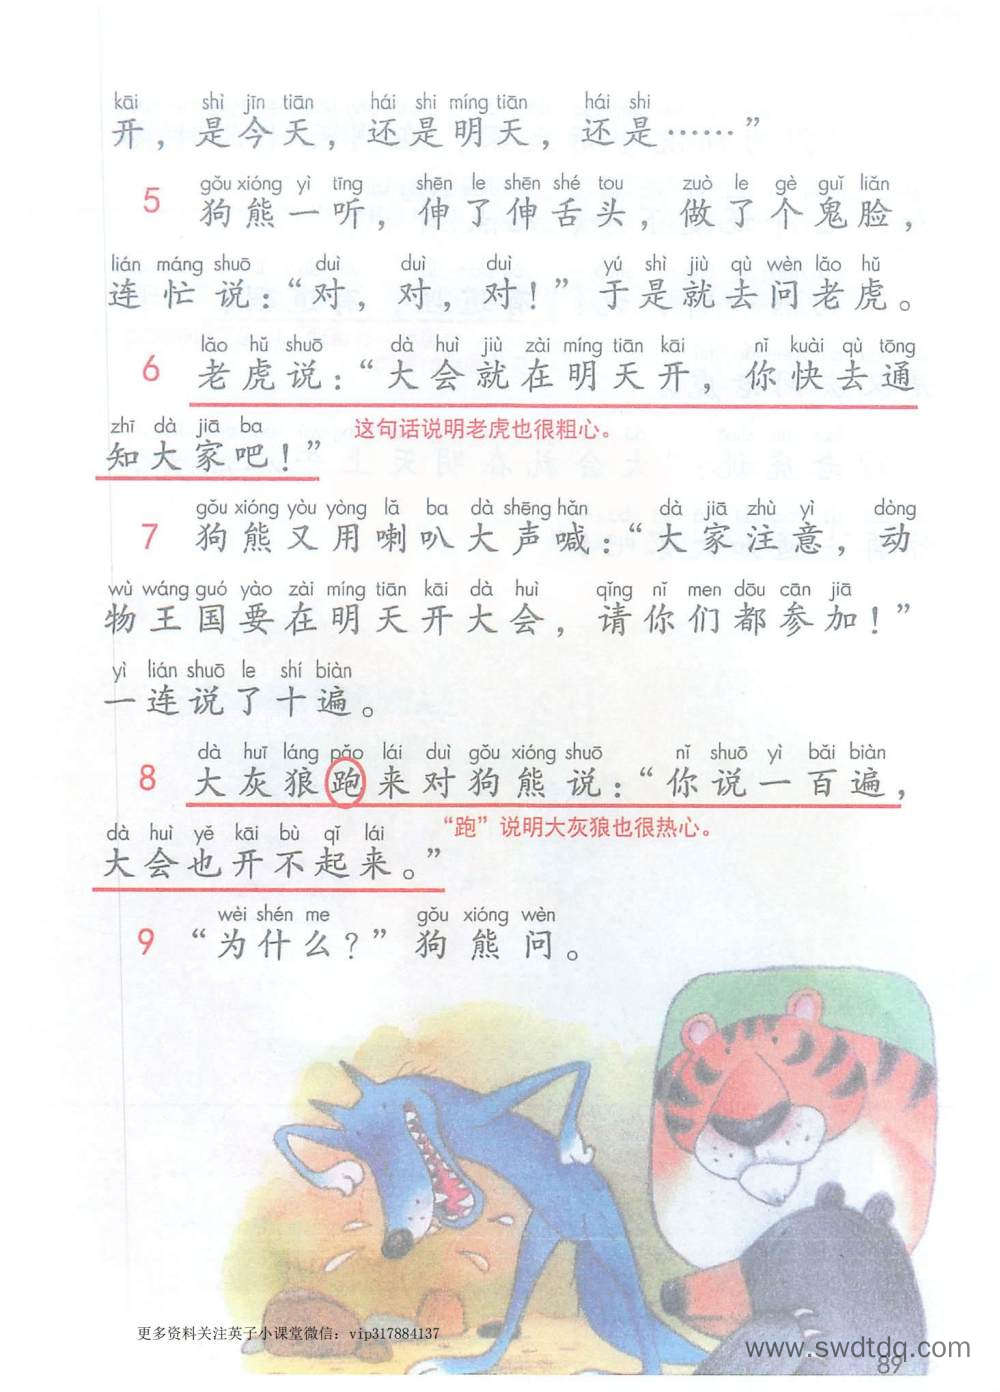 kāi shì jīn tiān hái shi míng tiān hái shi
开，是今天，还是明天，还是……”
gǒu xióng yì tīng shēn le shēn shé tou zuò le gè guǐ liǎn
5 狗熊一听，伸了伸舌头，做了个鬼脸，
lián máng shuō duì duì duì yú shì jiù qù wèn lǎo hǔ
连忙说：“对，对，对！”于是就去问老虎。
lǎo hǔ shuō dà huì jiù zài míng tiān kāi nǐ kuài qù tōng
6 老虎说：“大会就在明天开，你快去通
zhī dà jiā ba
知大家吧！”
这句话说明老虎也很粗心。
gǒu xióng yòu yòng lǎ ba dà shēng hǎn dà jiā zhù yì dòng
7 狗熊又用喇叭大声喊：“大家注意，动
wù wáng guó yào zài míng tiān kāi dà huì qǐng nǐ men dōu cān jiā
物王国要在明天开大会，请你们都参加！”
yì lián shuō le shí biàn
一连说了十遍。
dà huī láng pǎo lái duì gǒu xióng shuō nǐ shuō yì bǎi biàn
8 大灰狼跑来对狗熊说：“你说一百遍，
“跑”说明大灰狼也很热心。
dà huì yě kāi bù qǐ lái
大会也开不起来。”
wèi shén me gǒu xióng wèn
9 “为什么？”狗熊问。
更多资料关注英子小课堂微信：vip317884137
www.swdtdq.com
89